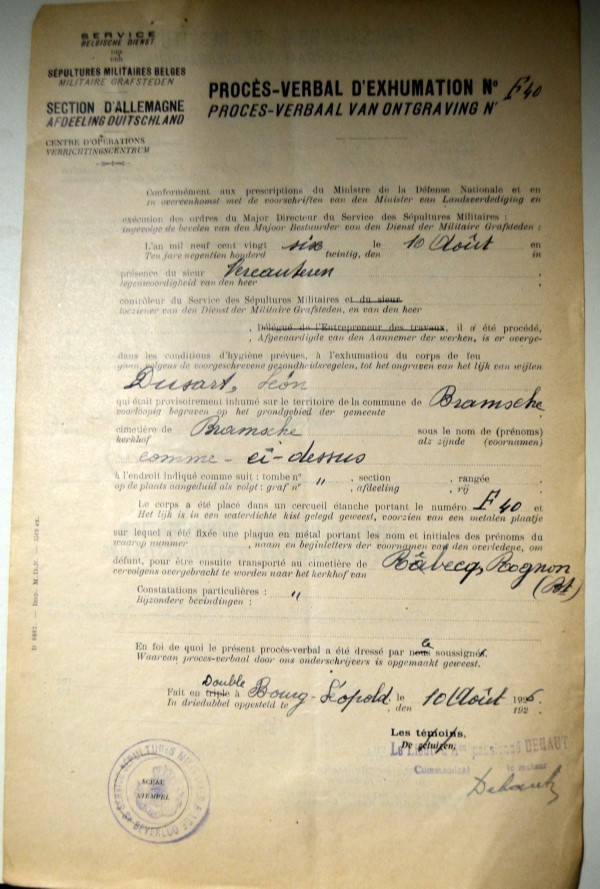 SERVICE
BELGISCHE DIENST
DES
DER
SÉPULTURES MILITAIRES BELGES
MILITAIRE GRAFSTEDEN
SECTION D'ALLEMAGNE
AFDEELING DUITSCHLAND
CENTRE D'OPÉRATIONS
VERRICHTINGSCENTRUM
PROCÈS-VERBAL D'EXHUMATION No F40
PROCES-VERBAAL VAN ONTGRAVING Nr
Conformément aux prescriptions du Ministre de la Défense Nationale et en
In overeenkomst met de voorschriften van den Minister van Landsverdediging en
exécution des ordres du Major Directeur du Service des Sépultures Militaires :
ingevolge de bevelen van den Majoor Bestuurder van den Dienst der Militaire Grafsteden :
L'an mil neuf cent vingt six le 10 Août en
Ten jare negentien honderd twintig, den in
présence du sieur Vercauteren
tegenwoordigheid van den heer
contrôleur du Service des Sépultures Militaires et du sieur
toeziener van den Dienst der Militaire Grafsteden, en van den heer
, Délégué de l'Entrepreneur des travaux, il a été procédé,
, Afgevaardigde van den Aannemer der werken, is er overge-
dans les conditions d'hygiène prévues, à l'exhumation du corps de feu
gaan, volgens de voorgeschreven gezondheidsregelen, tot het ongraven van het lijk van wijlen
Dusart, Léon
qui était provisoirement inhumé sur le territoire de la commune de Bramsche
voorloopig begraven op het grondgebied der gemeente
cimetière de Bramsche sous le nom de (prénoms)
kerkhof als zijnde (voornamen)
comme ci-dessus
à l'endroit indiqué comme suit : tombe no " , section , rangée
op de plaats aangeduid als volgt : graf no , afdeeling , rij
Le corps a été placé dans un cercueil étanche portant le numéro F40 et
Het lijk is in een waterdichte kist gelegd geweest, voorzien van een metalen plaatje
sur lequel a été fixée une plaque en métal portant les nom et initiales des prénoms du
waarop nummer , naam en beginletters der voornamen van den overledene, om
défunt, pour être ensuite transporté au cimetière de Rebecq, Rognon
vervolgens overgebracht te worden naar het kerkhof van (Bt)
Constatations particulières : "
Bijzondere bevindingen :
En foi de quoi le présent procès-verbal a été dressé par nous le soussigné.
Waarvan proces-verbaal door ons onderschrijvers is opgemaakt geweest.
Double
Fait en triple à Bourg-Léopold le 10 Août 1926.
In driedubbel opgesteld te , den 192
Les témoins,
De getuigen,
DEHAUT
Commandant le secteur
Dehaut
SCEAU
STEMPEL
SÉPULTURES MILITAIRES
BEVERLOO